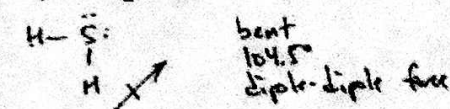 H–S̈:
|
H
bent
104.5°
dipole-dipole force